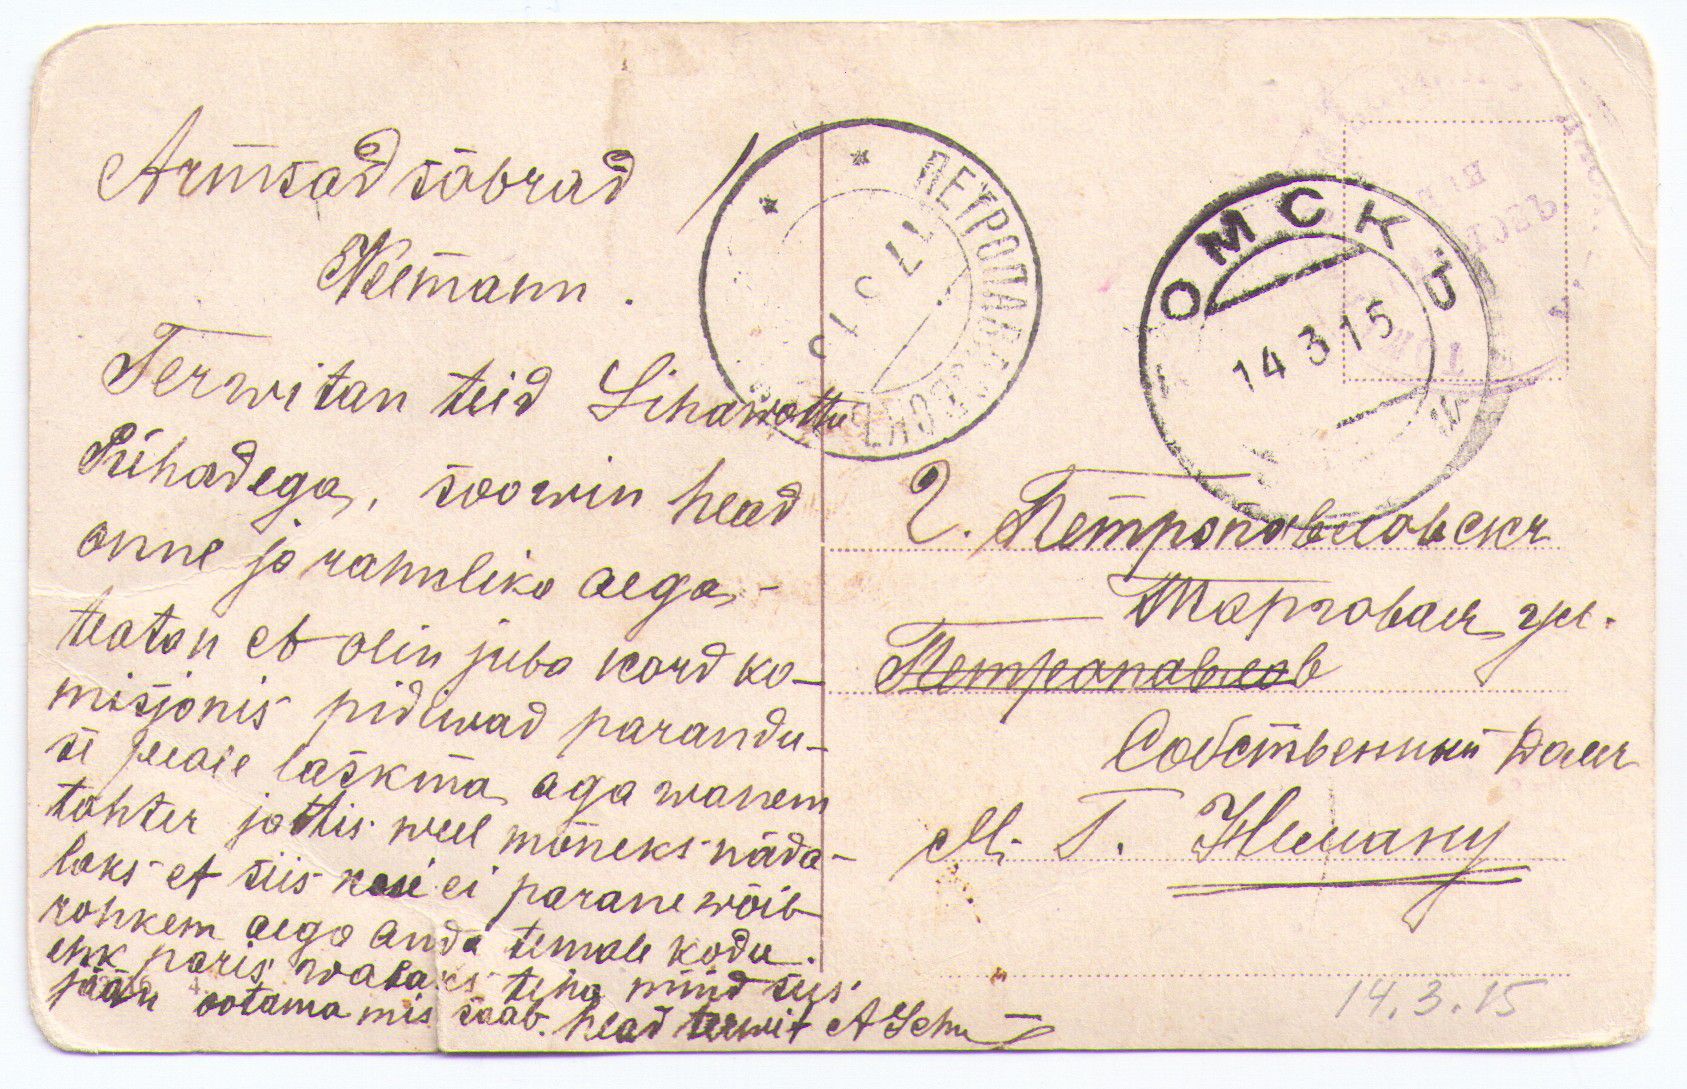 Armsad sõbrad
Neemann.
Terwitan teid Lihawottu
Pühadega, soowin head
onne ja rahuliko aega,-
teatan et olin juba kord ko-
misjonis pidiwad parandu-
se peale laskma, aga wanem
tohter jattis weel mõneks näda-
laks et siis kasi ei parane wõib
rohkem aega anda temale kodu.
ehk paris wabaks teha nüüd siis
jään ootama mis saab. head terwit A Schu
ПЕТРОПАВЛОВСКЪ
17 3 15
ОМСКЪ
14 3 15
г. Петропавловскъ
Тарговая ул.
Петропавлов
Собственный Домъ
М. Г. Нѣману
14.3.15